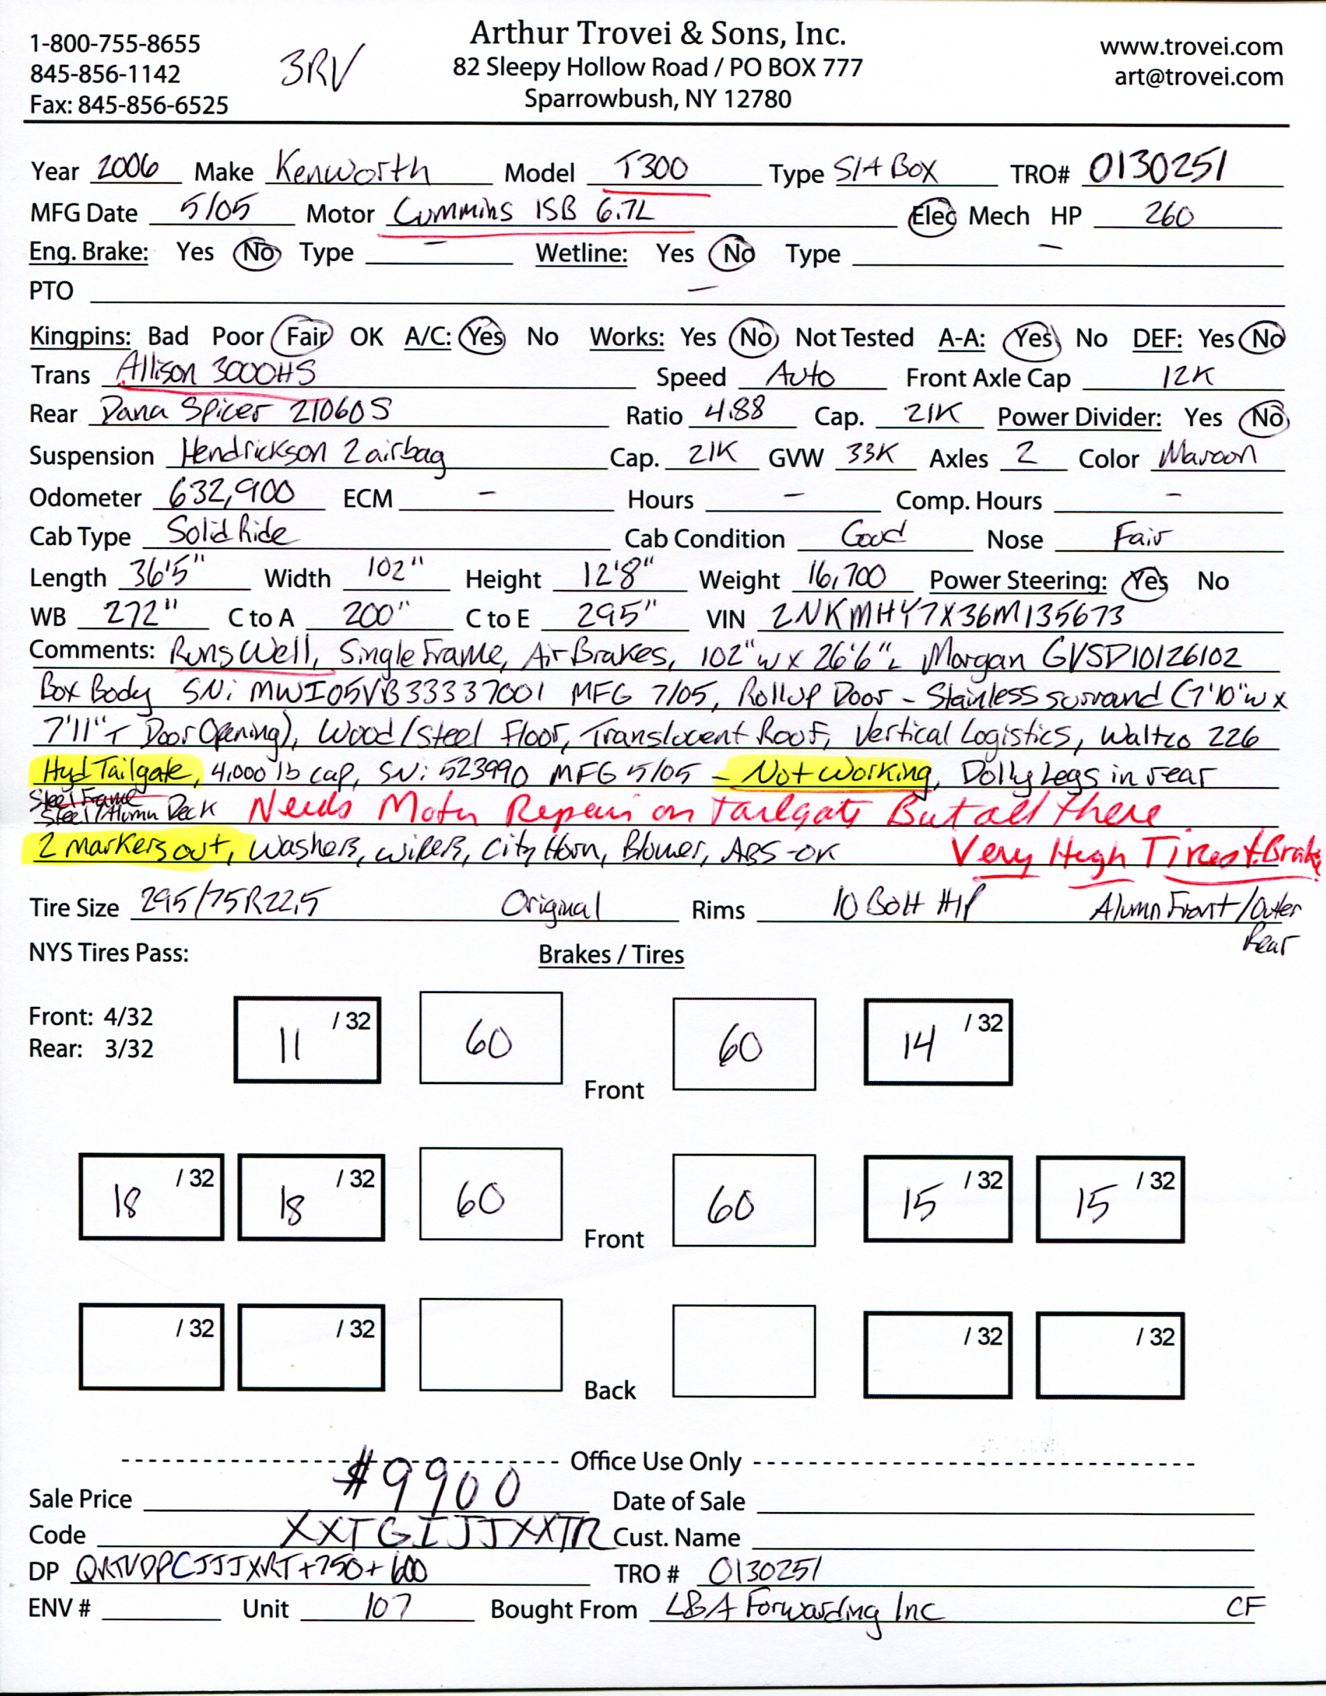 1-800-755-8655
845-856-1142
Fax: 845-856-6525
3RV
Arthur Trovei & Sons, Inc.
82 Sleepy Hollow Road / PO BOX 777
Sparrowbush, NY 12780
www.trovei.com
art@trovei.com
Year 2006 Make Kenworth Model T300 Type S/A Box TRO# 0130251
MFG Date 5/05 Motor Cummins ISB 6.7L Elec Mech HP 260
Eng. Brake: Yes No Type - Wetline: Yes No Type -
PTO -
Kingpins: Bad Poor Fair OK A/C: Yes No Works: Yes No Not Tested A-A: Yes No DEF: Yes No
Trans Allison 3000HS Speed Auto Front Axle Cap 12K
Rear Dana Spicer 21060S Ratio 4.88 Cap. 21K Power Divider: Yes No
Suspension Hendrickson 2 airbag Cap. 21K GVW 33K Axles 2 Color Maroon
Odometer 632,900 ECM - Hours - Comp. Hours -
Cab Type Solid Ride Cab Condition Good Nose Fair
Length 36'5" Width 102" Height 12'8" Weight 16,700 Power Steering: Yes No
WB 272" C to A 200" C to E 295" VIN 2NKMHY7X36M135673
Comments: Runs Well, Single Frame, Air Brakes, 102"W x 26'6"L Morgan GVSD10126102
Box Body SN: MWI05VB33337001 MFG 7/05, Rollup Door - Stainless surround (7'10"W x
7'11"T Door Opening), Wood/Steel Floor, Translucent Roof, Vertical Logistics, Waltco 226
Hyd Tailgate, 4,000 lb cap, SN: 523990 MFG 5/05 - Not Working, Dolly Legs in rear
Steel Frame
Steel/Alumn Deck Needs Moter Repair on Tailgate But all there
2 markers out, Washers, Wipers, City Horn, Blower, ABS-OK Very High Tires + Brake
Tire Size 295/75R22.5 Original Rims 10 Bolt HP Alumn Front/Outer
Rear
NYS Tires Pass: Brakes / Tires
Front: 4/32
Rear: 3/32
11 /32 60 Front 60 14 /32
18 /32 18 /32 60 Front 60 15 /32 15 /32
/ 32 / 32 Back / 32 / 32
Office Use Only
Sale Price $9900 Date of Sale
Code XXTGIJJXXTR Cust. Name
DP TRO # 0130251
ENV # Unit 107 Bought From L&A Forwarding Inc CF